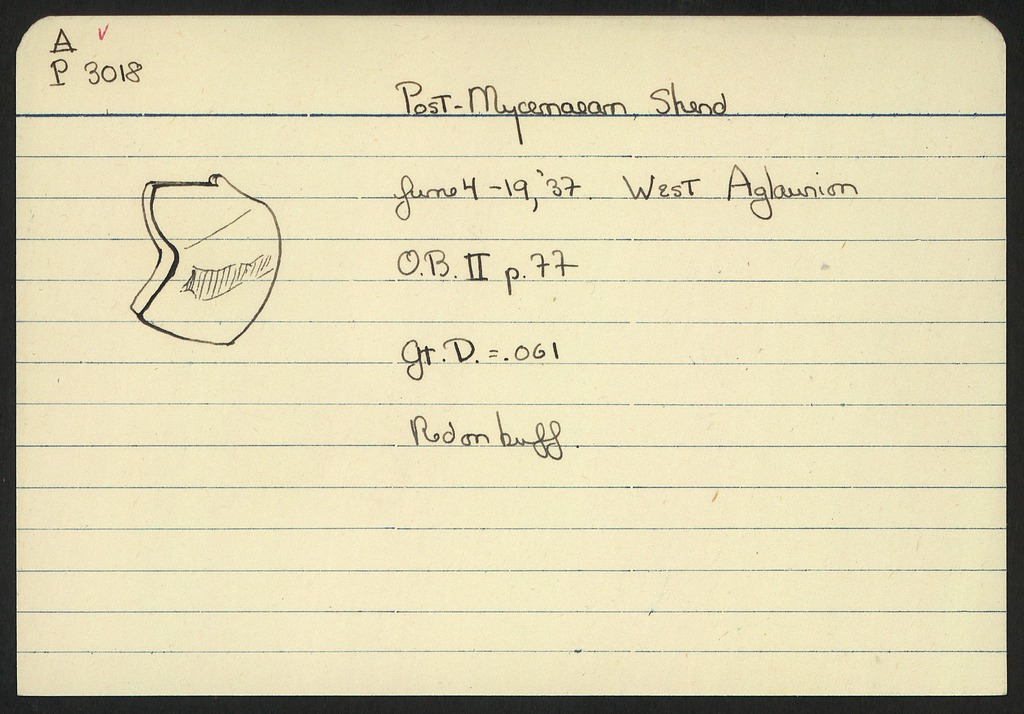 A
P 3018
Post-Mycenaean Sherd
June 4-19, '37. West Aglaurion
O.B. II p. 77
Gr. D. = .061
Red on buff.